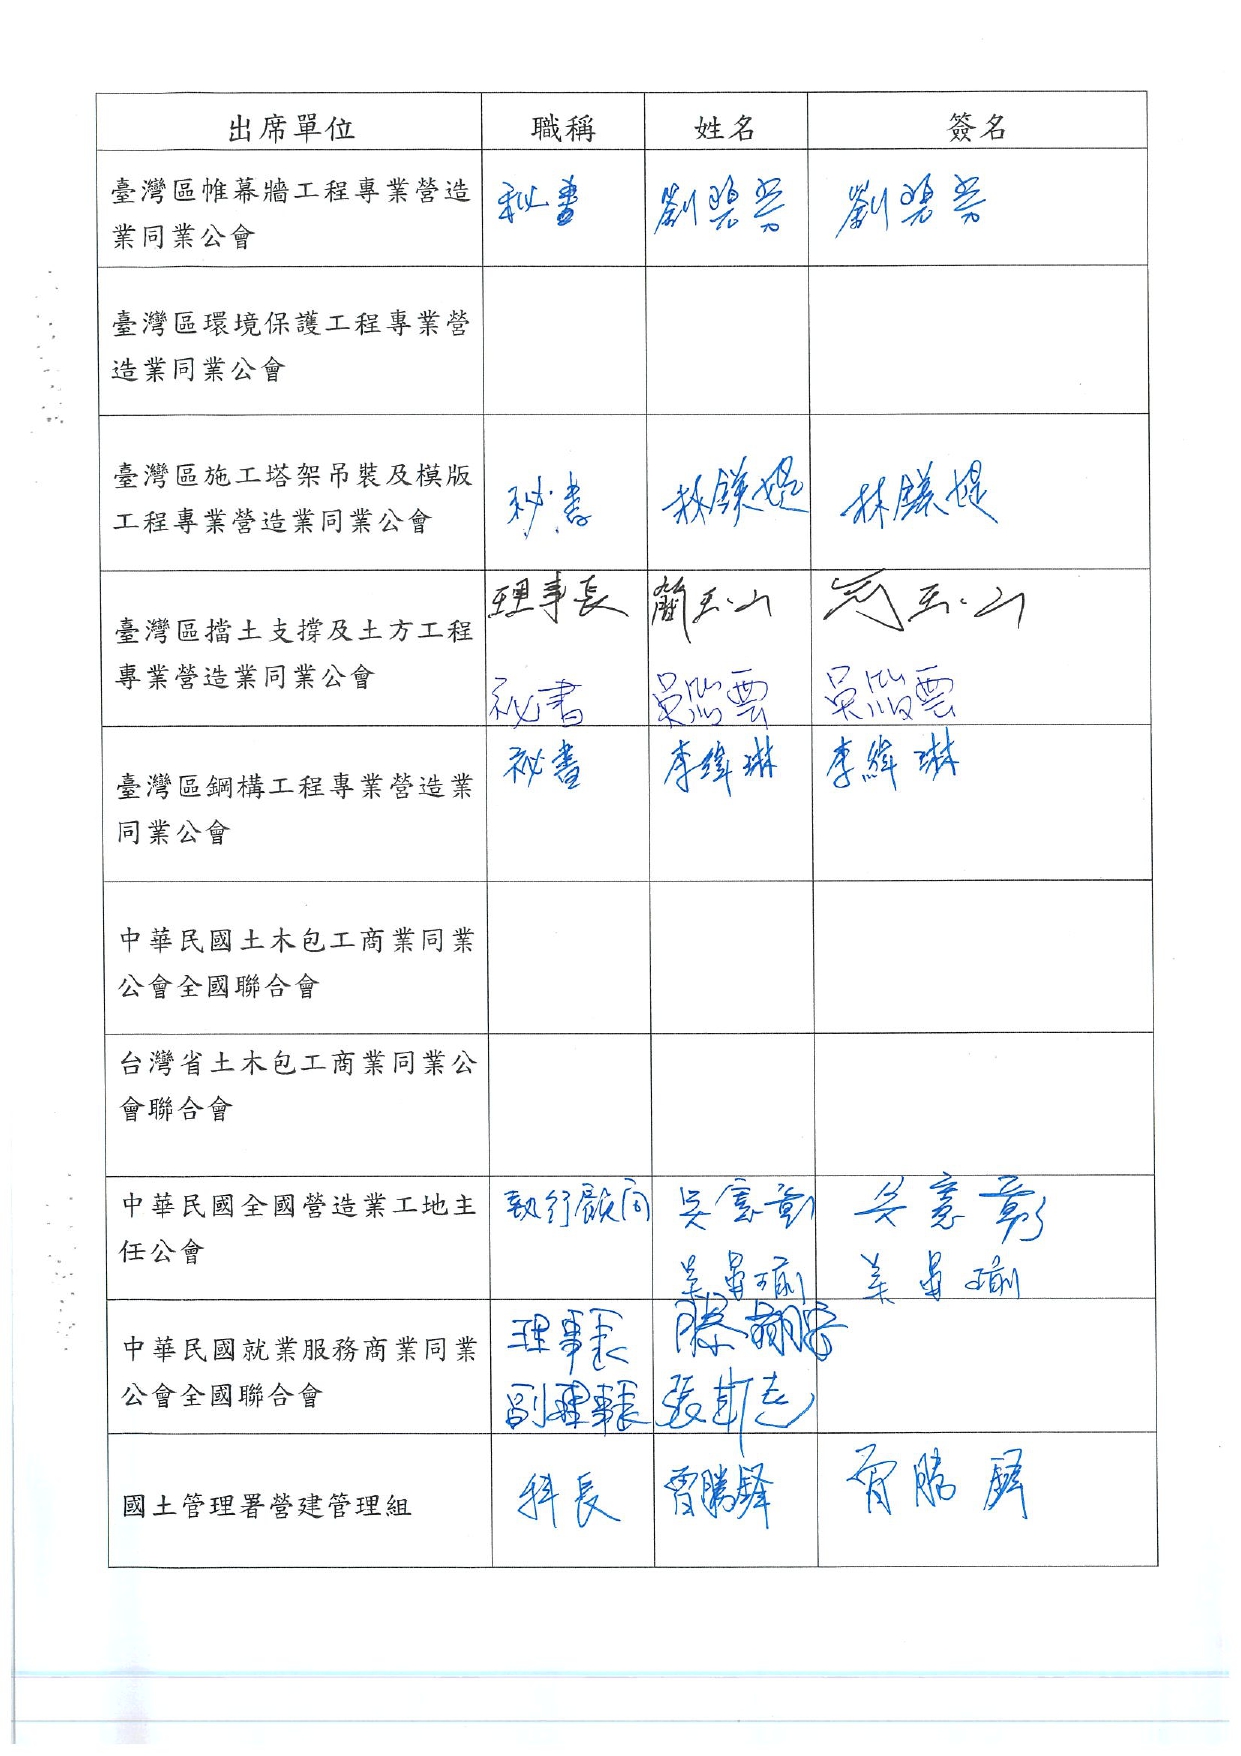 出席單位 職稱 姓名 簽名
臺灣區帷幕牆工程專業營造
業同業公會
秘書 劉碧芳 劉碧芳
臺灣區環境保護工程專業營
造業同業公會
臺灣區施工塔架吊裝及模版
工程專業營造業同業公會
秘書 林鎂媞 林鎂媞
臺灣區擋土支撐及土方工程
專業營造業同業公會
理事長 玉山 玉山
秘書 吳 雲 吳 雲
臺灣區鋼構工程專業營造業
同業公會
秘書 李緯琳 李緯琳
中華民國土木包工商業同業
公會全國聯合會
台灣省土木包工商業同業公
會聯合會
中華民國全國營造業工地主
任公會
執行顧問 吳憲彰 吳憲彰
中華民國就業服務商業同業
公會全國聯合會
理事長
副理事長 張
國土管理署營建管理組
科長